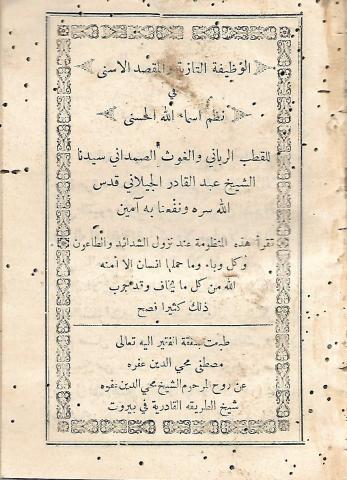 الوظيفة التازية والمقصد الاسنى
في
نظم اسماء الله الحسنى
للقطب الرباني والغوث الصمداني سيدنا
الشيخ عبد القادر الجيلاني قدس
الله سره ونفعنا به آمين
تقرأ هذه المنظومة عند نزول الشدائد والطاعون
وكل وباء وما حملها انسان الا أمنه
الله من كل ما يخاف وقد جرب
ذلك كثيرا فصح
طبعت بنفقة الفقير اليه تعالى
مصطفى محي الدين عفره
عن روح المرحوم الشيخ محي الدين عفره
شيخ الطريقه القادرية في بيروت